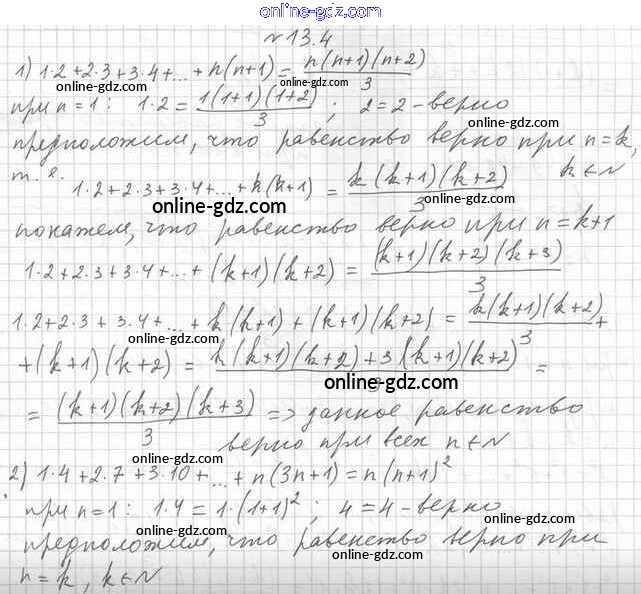 online-gdz.com
№13.4
1) 1·2+2·3+3·4+...+n(n+1)= n(n+1)(n+2)/3
online-gdz.com online-gdz.com
при n=1: 1·2 = 1(1+1)(1+2)/3 ; 2=2 - верно
online-gdz.com
предположим, что равенство верно при n=k,
т.е. 1·2+2·3+3·4+...+k(k+1) = k(k+1)(k+2)/3 k∈N
online-gdz.com online-gdz.com
покажем, что равенство верно при n=k+1
1·2+2·3+3·4+...+(k+1)(k+2) = (k+1)(k+2)(k+3)/3
online-gdz.com
1·2+2·3+3·4+...+k(k+1)+(k+1)(k+2) = k(k+1)(k+2)/3 +
online-gdz.com online-gdz.com
+(k+1)(k+2) = k(k+1)(k+2)+3(k+1)(k+2)/3 =
online-gdz.com
= (k+1)(k+2)(k+3)/3 => данное равенство
online-gdz.com
верно при всех n∈N
online-gdz.com
2) 1·4+2·7+3·10+...+n(3n+1)=n(n+1)²
online-gdz.com
при n=1: 1·4=1·(1+1)²; 4=4 - верно
online-gdz.com online-gdz.com
предположим, что равенство верно при
online-gdz.com
n=k, k∈N